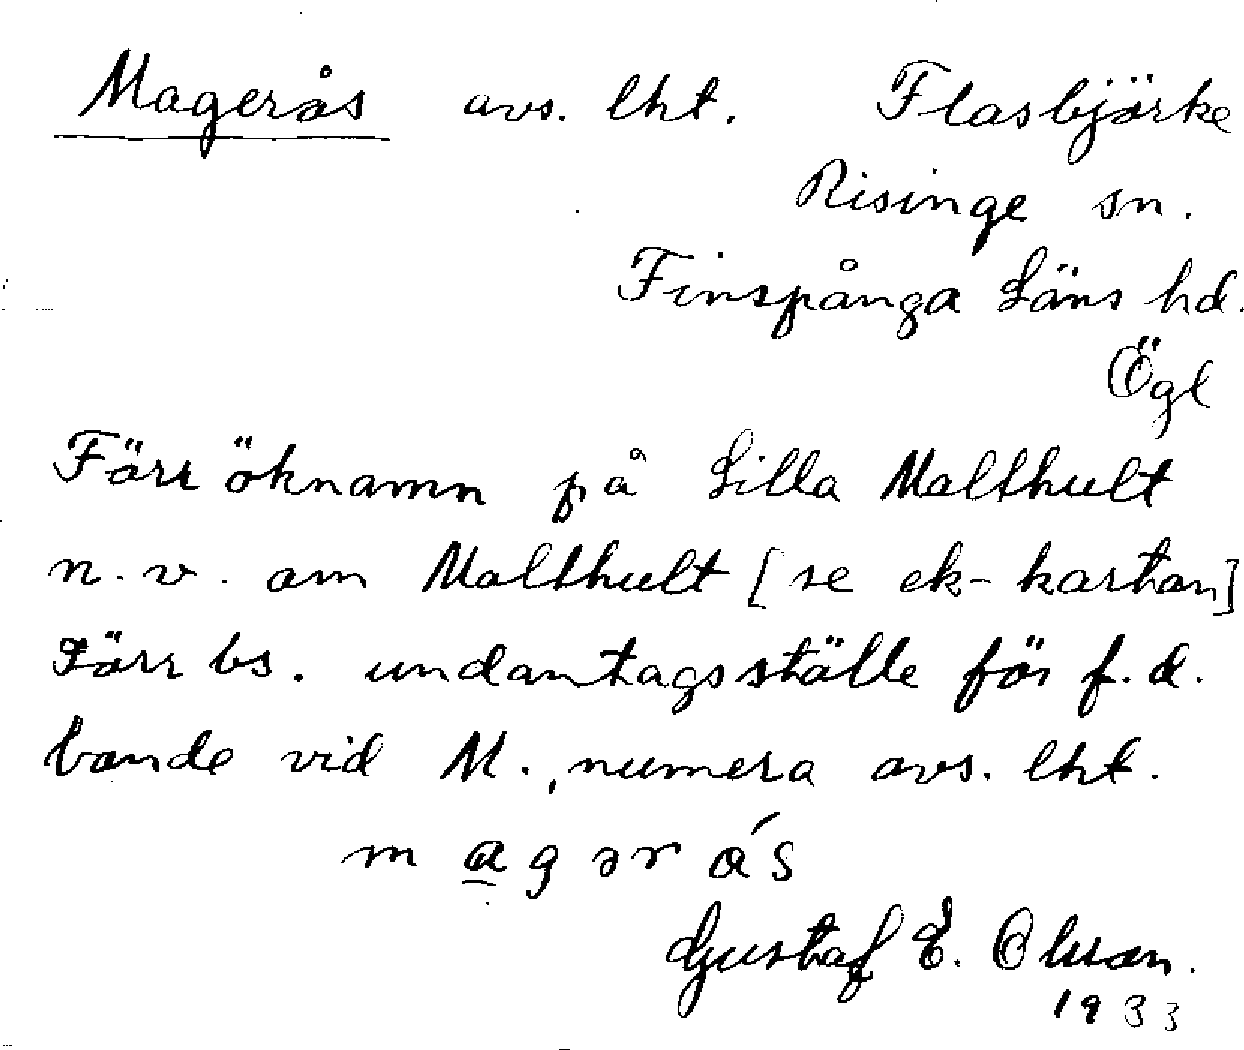 Magerås avs. lht. Flasbjörke
Risinge sn.
Finspånga Läns hd.
Ögl
Förr öknamn på Lilla Malthult
n.v. om Malthult [se ek-kartan]
Förr bs. undantagsställe för f.d.
bonde vid M., numera avs. lht.
m a g ər ås
Gustaf E. Olsson.
1933